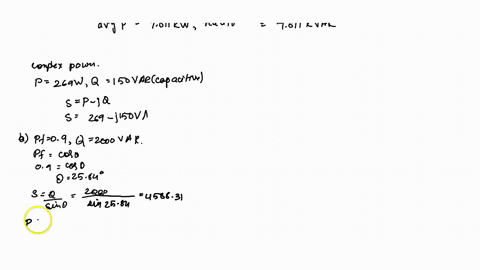 avg P = 7.011 kW, = 7.011 KVAR
complex power.
P = 269W, Q = 150 VAR (capacitive)
S = P - jQ
S = 269 - j150 VA
b) Pf = 0.9, Q = 2000 VAR.
Pf = cosθ
0.9 = cosθ
θ = 25.84°
S = Q/sinθ = 2000/sin 25.84 = 4588.31
P